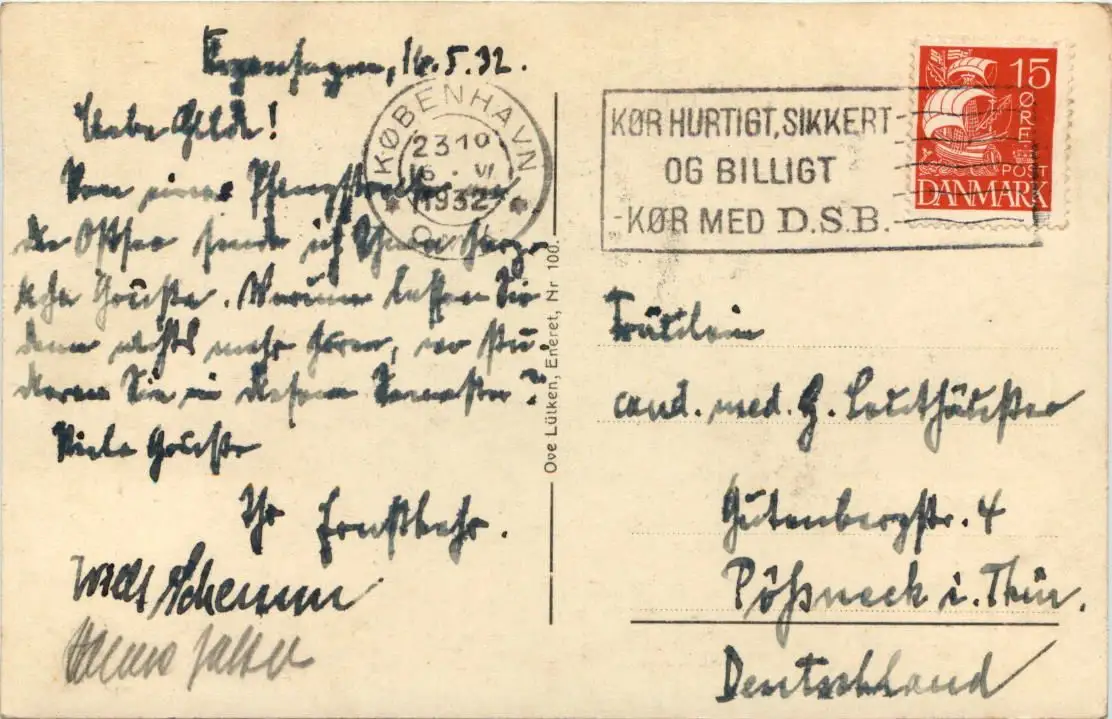 Kopenhagen, 16.5.32.
Liebe Hilde!
Von einer Pfingst an
die Ostsee sende ich Ihnen herz-
liche Grüsse. Warum lassen Sie
denn nichts mehr hören, wo stu-
dieren Sie in diesem Semester?
Viele Grüsse
Ihr
Willi Schemm
KØBENHAVN
2310
1932
KØR HURTIGT, SIKKERT
OG BILLIGT
KØR MED D.S.B.
15
ØRE
POST
DANMARK
Ove Lütken, Eneret, Nr 100.
Fräulein
cand. med. G. Leuthäusser
Gutenbergstr. 4
Pößneck i. Thür.
Deutschland